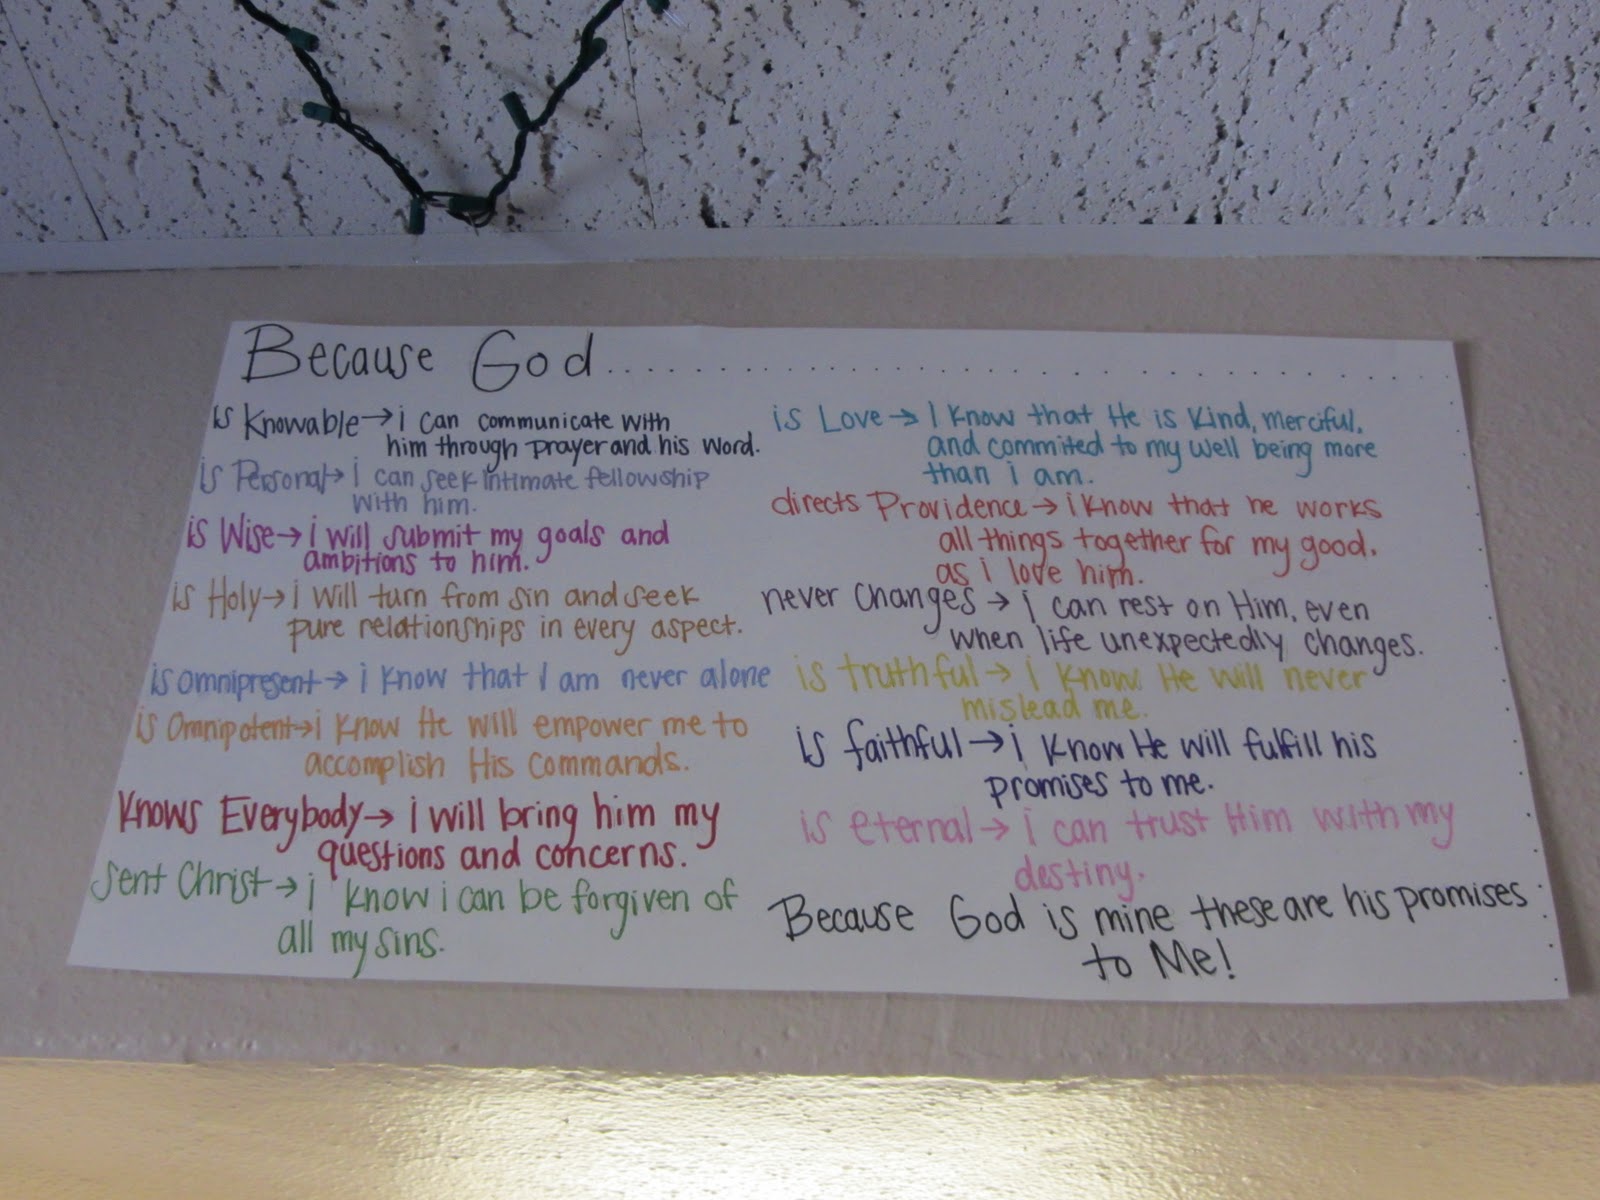 Because God....................................
is Knowable→ i can communicate with
him through prayer and his word.
is Personal→ i can seek intimate fellowship
with him.
is Wise→ i will submit my goals and
ambitions to him.
is Holy→ i will turn from sin and seek
pure relationships in every aspect.
is omnipresent→ i know that I am never alone
is Omnipotent→ i know He will empower me to
accomplish His commands.
Knows Everybody→ i will bring him my
questions and concerns.
Sent Christ→ i know i can be forgiven of
all my sins.
is Love→ I know that He is Kind, merciful,
and commited to my well being more
than i am.
directs Providence→ i know that he works
all things together for my good,
as i love him.
never changes→ i can rest on Him, even
when life unexpectedly changes.
is truthful→ i know He will never
mislead me.
is faithful→ i know He will fulfill his
promises to me.
is eternal→ i can trust Him with my
destiny.
Because God is mine these are his promises
to Me!